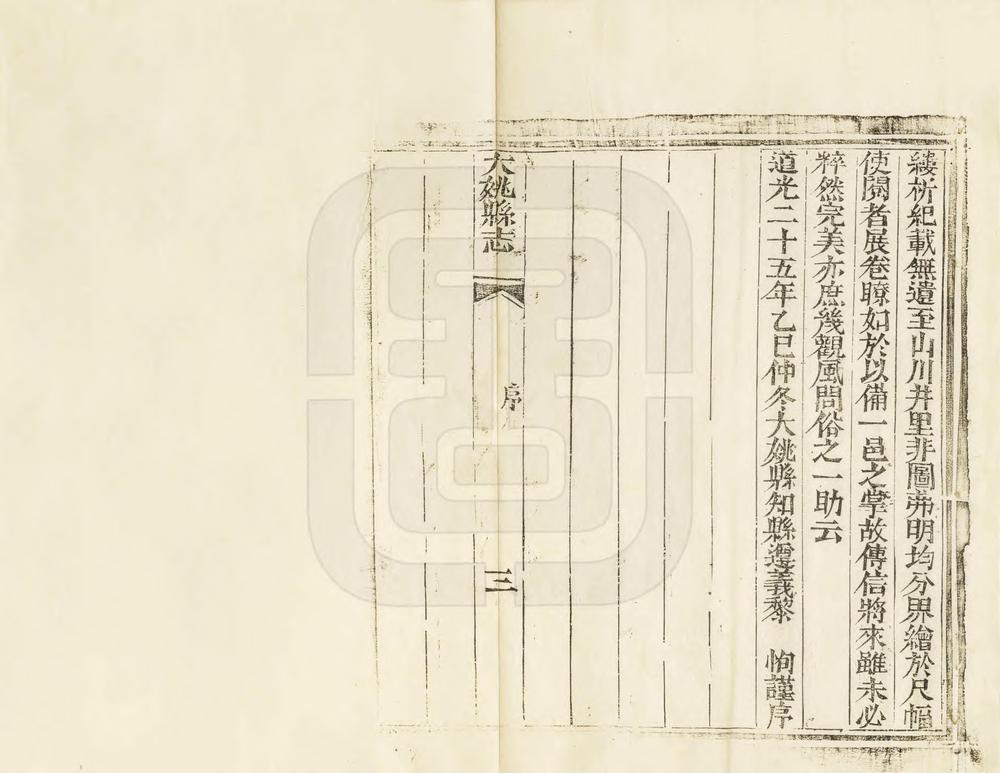 縷析紀載無遺至山川井里非圖弗明均分界繪於尺幅
使閱者展卷瞭如於以備一邑之掌故傳信將來雖未必
粹然完美亦庶幾觀風問俗之一助云
道光二十五年乙巳仲冬大姚縣知縣遵義黎 恂謹序
大姚縣志 序 三